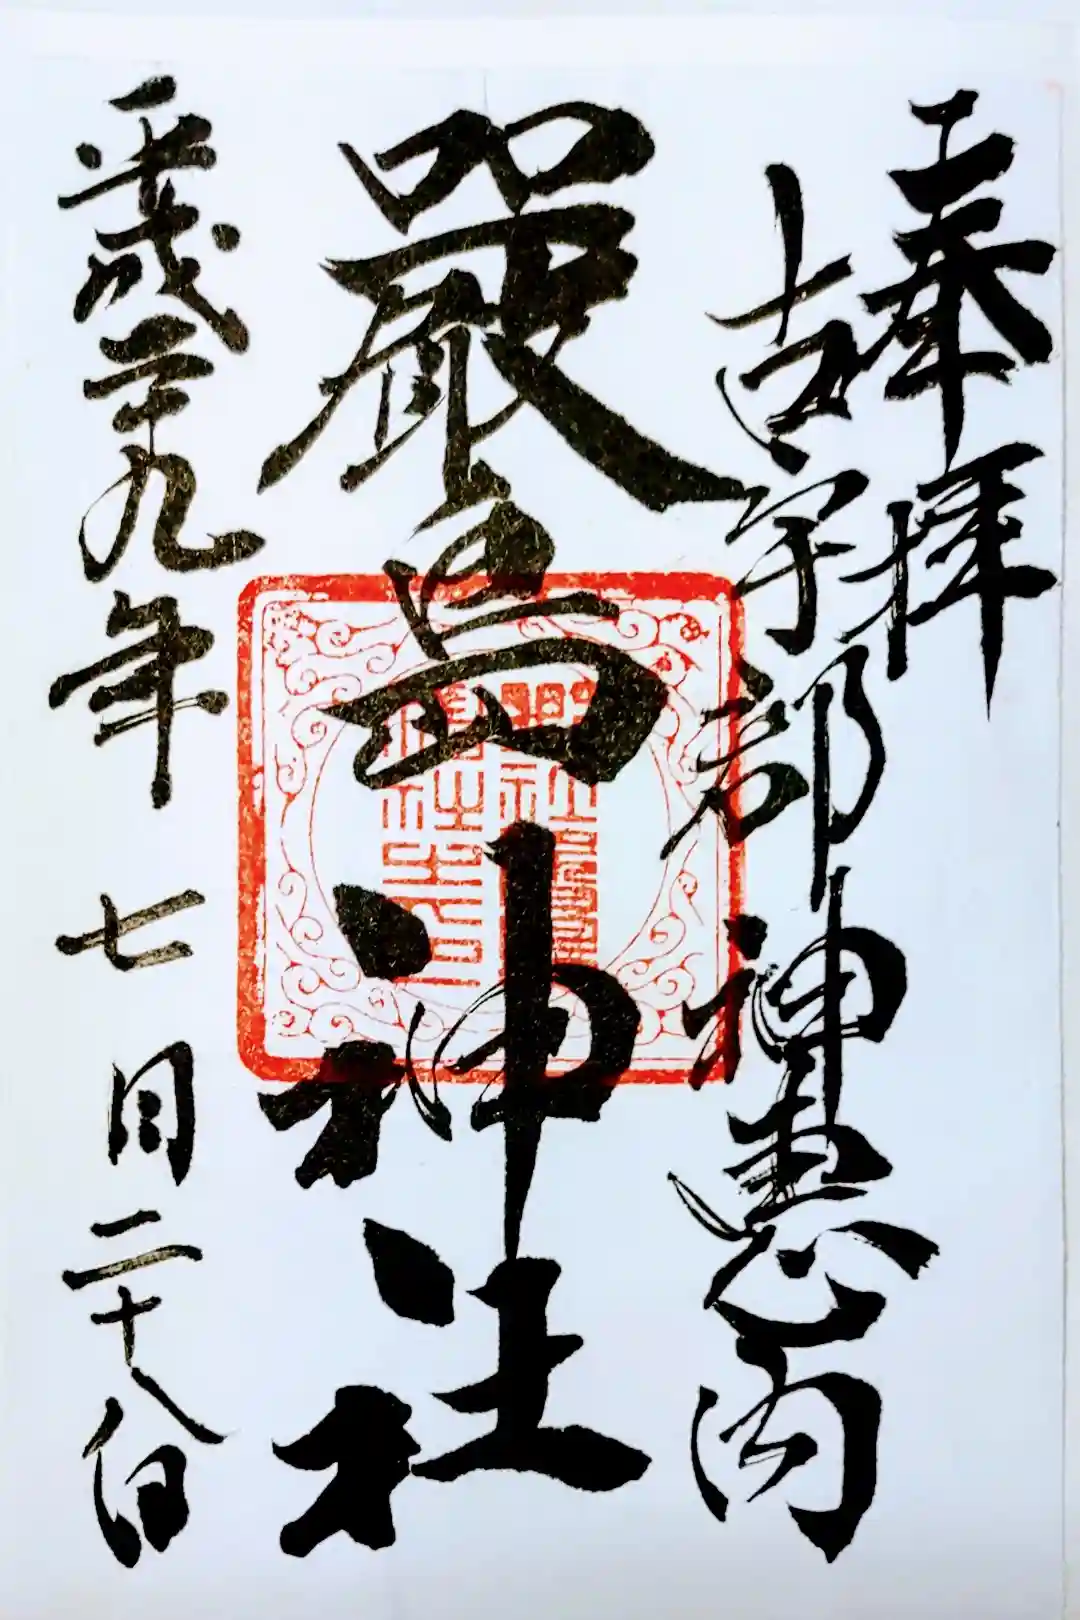 奉拝
古宇部神恵内
嚴島神社
平成二十九年 七月二十八日